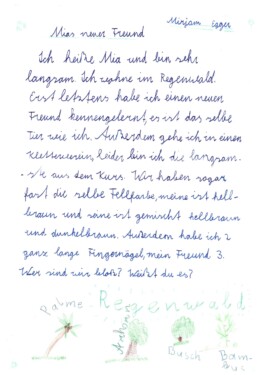 Mirjam Egger
Mias neuer Freund
Ich heiße Mia und bin sehr
langsam. Ich wohne im Regenwald.
Erst letztens habe ich einen neuen
Freund kennengelernt, er ist das selbe
Tier wie ich. Außerdem gehe ich in einen
Kletterverein, leider bin ich die langsam-
ste aus dem Kurs. Wir haben sogar
fast die selbe Fellfarbe, meine ist hell-
braun und seine ist gemischt hellbraun
und dunkelbraun. Außerdem habe ich 2
ganz lange Fingernägel, mein Freund 3.
Wer sind wir bloß? Weißt du es?
Regenwald
Palme
Busch
Bam-
bus